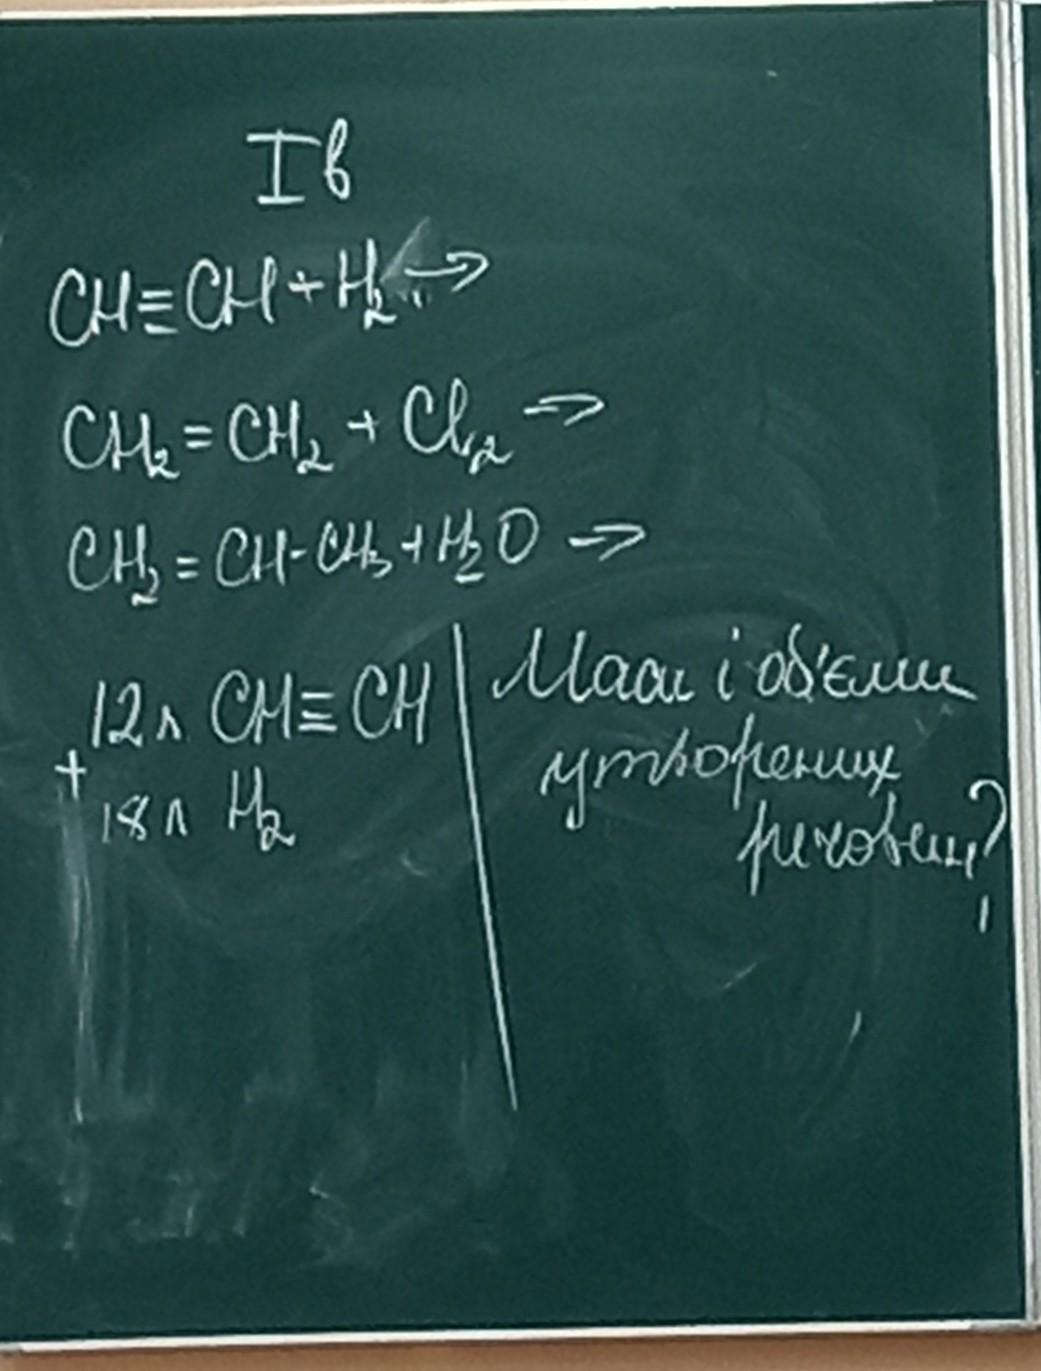 I в
CH≡CH+H₂→
CH₂=CH₂ + Cl₂ →
CH₂=CH-CH₃+H₂O →
12л CH≡CH
+
18л H₂
Маси і об'єми
утворених
речовин?